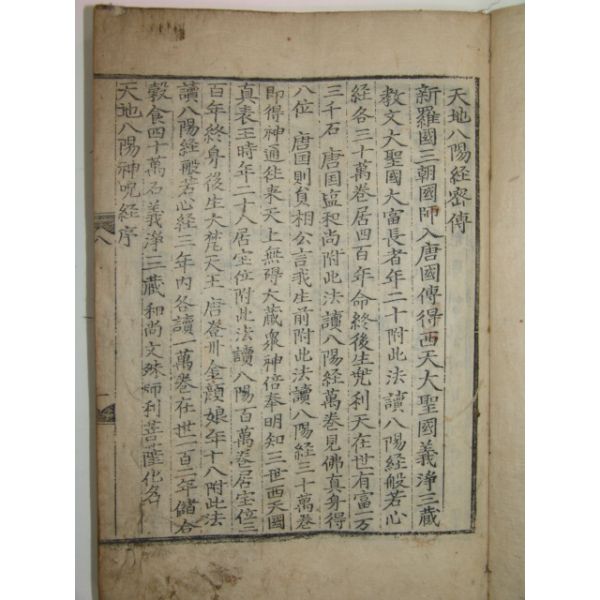 天地八陽經密傳
新羅國三朝國師入唐國傳得西天大聖國義淨三藏
教文大聖國大富長者年二十附此法讀八陽經般若心
經各三十萬卷居四百年命終後生兜利天在世有富一万
三千石 唐国監和尚附此法讀八陽經萬卷見佛真身得
八位 唐国則貟相公言我生前附此法讀八陽經三十萬卷
即得神通往來天上無碍大藏衆神倍奉明知三世西天國
真表王時年二十人居宝位附此法讀八陽百萬卷居宝位三
百年終身後生大梵天王 唐登州金顔娘年十八附此法
讀八陽經般若心經三年內各讀一萬卷在世一百二年儲合
穀食四十萬石義淨三藏和尚文殊師利菩陸化名
天地八陽神呪經序
八
一